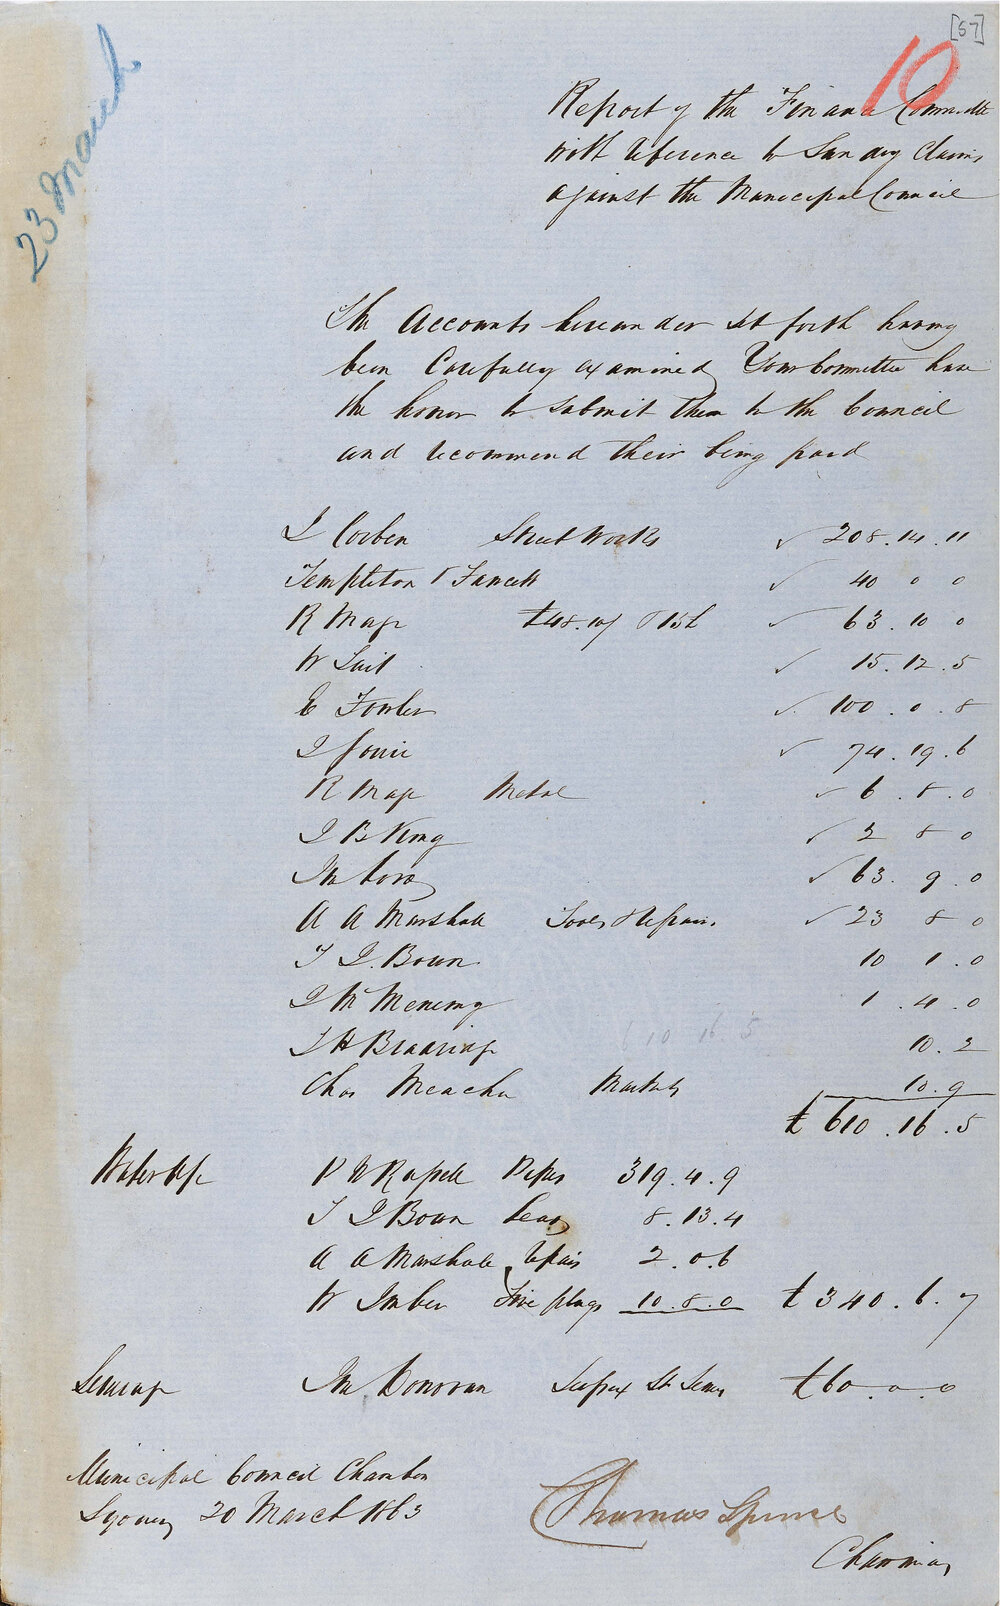 [57]
10
23 March
Report of the Finance Committee
with reference to Sundry Claims
against the Municipal Council
The Accounts hereunder set forth having
been Carefully examined Your Committee have
the honor to submit them to the Council
and recommend their being paid
J Corben Street Works ✓ 208.14.11
Templeton & Fawcett ✓ 40 0 0
R Mage £48.10/ & 15£ ✓ 63.10 0
W Tait ✓ 15.12.5
E Fowler ✓ 100.0.8
J ✓ 74.19.6
R Mage Metal ✓ 6.8.0
J B King ✓ 2 8 0
Jn ✓ 63.9.0
A A Marshall Tools & Repairs ✓ 23 8 0
T J. Bown 10 1.0
J Mc 1.4.0
J H 10.2
610 16 5
Chas Meacha Markets 10.9
£610.16.5
Water Pipe
P N Russell Pipes 319.4.9
T J Bown Lead 8.13.4
A A Marshall Repairs 2.0.6
W Imber Fire plugs 10.8.0 £340.6.7
Sewerage Jn Donovan Sussex St Sewer £60.0.0
Municipal Council Chamber
Sydney 20 March 1863
Thomas Spence
Chairman